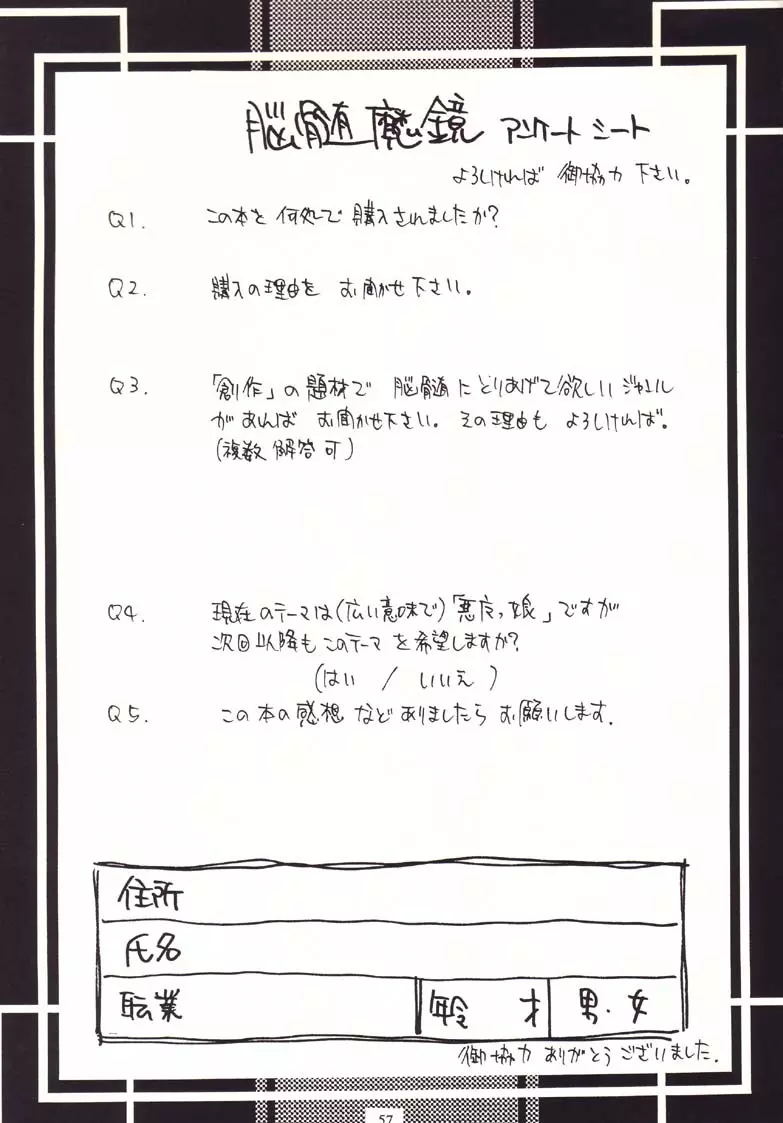 脳髄魔鏡 アンケートシート
よろしければ 御協力 下さい。
Q1. この本を何処で購入されましたか?
Q2. 購入の理由を お聞かせ下さい。
Q3. 「創作」の題材で 脳髄にとりあげて欲しいジャンル
があれば お聞かせ下さい。その理由も よろしければ。
(複数解答可)
Q4. 現在のテーマは(広い意味で)「悪たっ娘」ですが
次回以降もこのテーマを希望しますか?
(はい / いいえ)
Q5. この本の感想 などありましたら お願いします.
住所
氏名
職業 年令 才 男・女
御協力 ありがとうございました.
57